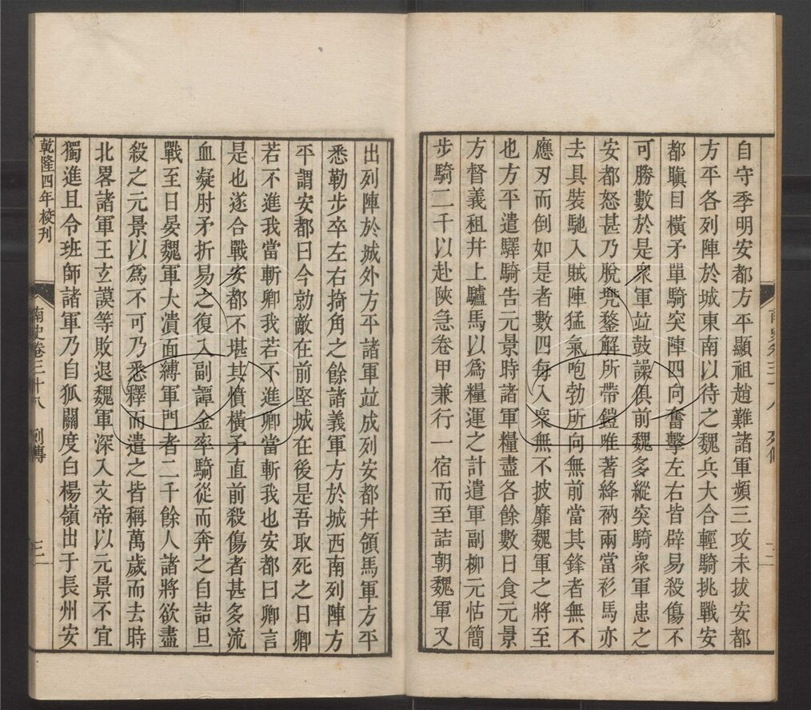 自守季明安都方平顯祖趙難諸軍頻三攻未拔安都
方平各列陣於城東南以待之魏兵大合輕騎挑戰安
都瞋目橫矛單騎突陣四向奮擊左右皆辟易殺傷不
可勝數於是衆軍竝鼓譟俱前魏多縱突騎衆軍患之
安都怒甚乃脫兜鍪解所帶鎧唯著絳衲兩當衫馬亦
去具裝馳入賊陣猛氣咆勃所向無前當其鋒者無不
應刃而倒如是者數四每入衆無不披靡魏軍之將至
也方平遣驛騎告元景時諸軍糧盡各餘數日食元景
方督義租并上驢馬以爲糧運之計遣軍副柳元怙簡
步騎二千以赴陝急卷甲兼行一宿而至詰朝魏軍又
出列陣於城外方平諸軍竝成列安都并領馬軍方平
悉勒步卒左右掎角之餘諸義軍方於城西南列陣方
平謂安都曰今勍敵在前堅城在後是吾取死之日卿
若不進我當斬卿我若不進卿當斬我也安都曰卿言
是也遂合戰安都不堪其憤橫矛直前殺傷者甚多流
血凝肘矛折易之復入副譚金率騎從而奔之自詰旦
戰至日晏魏軍大潰面縛軍門者二千餘人諸將欲盡
殺之元景以爲不可乃悉釋而遣之皆稱萬歲而去時
北畧諸軍王玄謨等敗退魏軍深入文帝以元景不宜
獨進且令班師諸軍乃自狐關度白楊嶺出于長州安
乾隆四年校刊
南史卷三十八 列傳